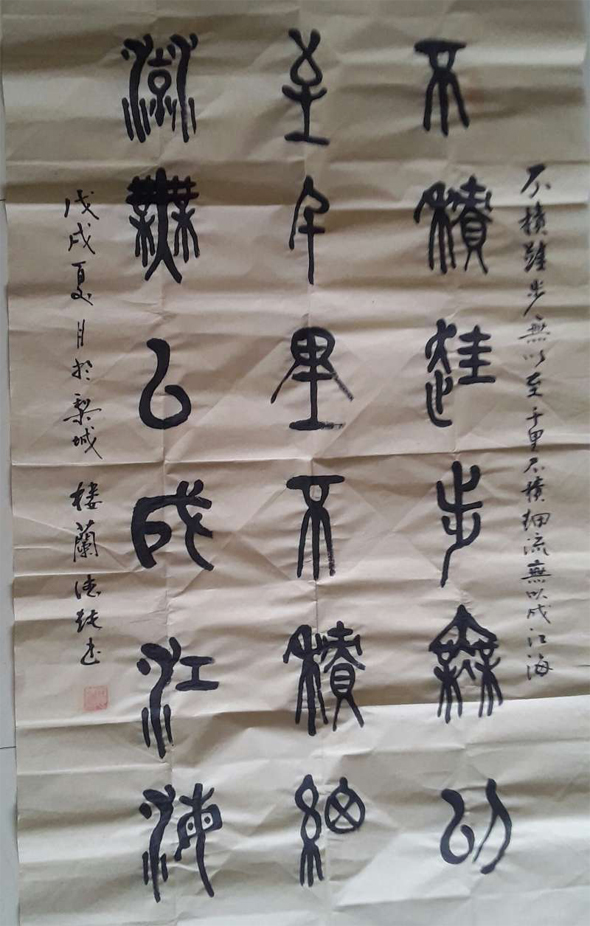 不積跬步無以至千里不積細流無以成江海
不積跬步無以
至千里不積細
流無以成江海
戊戌夏月於梨城 樓蘭書